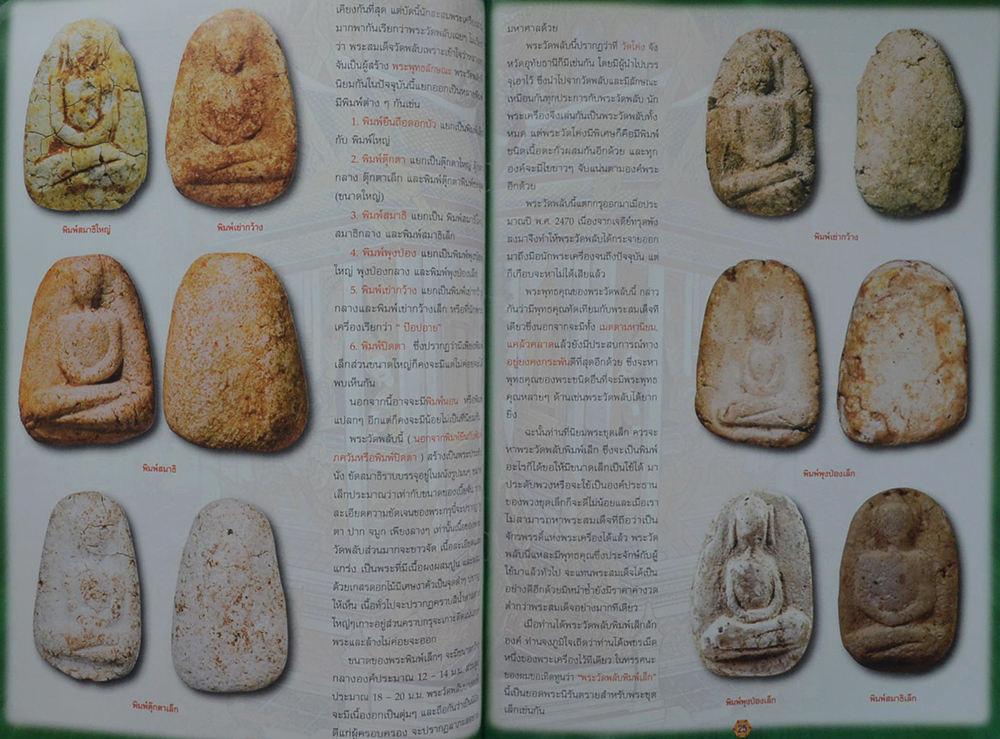 พิมพ์สมาธิใหญ่
พิมพ์เข่ากว้าง
พิมพ์สมาธิ
พิมพ์ตุ๊กตาเล็ก
เคียงกันที่สุด แต่บัดนี้นักสะสมพระเครื่อง
มากพากันเรียกว่าพระวัดพลับเฉยๆ
ว่า พระสมเด็จวัดพลับเพราะเข้าใจว่า
จันเป็นผู้สร้าง พระพุทธลักษณะ พระวัดพลับ
นิยมกันในปัจจุบันนี้แยกออกเป็นหลาย
มีพิมพ์ต่าง ๆ กันเช่น
1. พิมพ์ยืนถือดอกบัว แยกเป็นพิมพ์เล็ก
กับ พิมพ์ใหญ่
2. พิมพ์ตุ๊กตา แยกเป็นตุ๊กตาใหญ่
กลาง ตุ๊กตาเล็ก และพิมพ์ตุ๊กตา
(ขนาดใหญ่)
3. พิมพ์สมาธิ แยกเป็น พิมพ์สมาธิ
สมาธิกลาง และพิมพ์สมาธิเล็ก
4. พิมพ์พุงป่อง แยกเป็นพิมพ์พุงป่อง
ใหญ่ พุงป่องกลาง และพิมพ์พุงป่องเล็ก
5. พิมพ์เข่ากว้าง แยกเป็นพิมพ์เข่ากว้าง
กลางและพิมพ์เข่ากว้างเล็ก หรือที่
เครื่องเรียกว่า “ ป๊อปอาย”
6. พิมพ์ปิดตา ซึ่งปรากฏว่ามีเพียง
เล็กส่วนขนาดใหญ่ก็คงจะมีแต่ไม่ค่อยจะ
พบเห็นกัน
นอกจากนี้อาจจะมีพิมพ์นอน หรือ
แปลกๆ อีกแต่ก็คงจะมีน้อยไม่เป็นที่นิยม
พระวัดพลับนี้ ( นอกจากพิมพ์ยืน
ภควัมหรือพิมพ์ปิดตา ) สร้างเป็นพระ
นั่ง ขัดสมาธิราบบรรจุอยู่ในผนังรูป
เล็กประมาณว่าเท่ากับขนาดของ
ละเอียดความชัดเจนของพระกรุนี้จะปรากฏ
ตา ปาก จมูก เพียงลางๆ เท่านั้นเนื้อของพระ
วัดพลับส่วนมากจะขาวจัด เนื้อละเอียด
แกร่ง เป็นพระที่มีเนื้อผงผสมปูน
ด้วยเกสรดอกไม้มีเศษงาคั่วเป็นจุดดำๆ
ให้เห็น เนื้อทั่วไปจะปรากฏคราบสีน้ำตาล
ใหญ่ๆเกาะอยู่ส่วนคราบกรุจะเกาะติด
พระและล้างไม่ค่อยจะออก
ขนาดของพระพิมพ์เล็กๆ จะมีขนาด
กลางองค์ประมาณ 12 - 14 ม.ม.
ประมาณ 18 - 20 ม.ม. พระวัดพลับ
จะมีเนื้องอกเป็นตุ่มๆ และถือกันว่าเป็น
ดีแก่ผู้ครอบครอง จะปรากฏลาภ
มหาศาลด้วย
พระวัดพลับนี้ปรากฏว่าที่ วัดโค่ง จัง
หวัดอุทัยธานีก็มีเช่นกัน โดยมีผู้นำไปบรร
จุเอาไว้ ซึ่งนำไปจากวัดพลับและมีลักษณะ
เหมือนกันทุกประการกับพระวัดพลับ นัก
พระเครื่องจึงเล่นกันเป็นพระวัดพลับทั้ง
หมด แต่พระวัดโค่งมีพิเศษก็คือมีพิมพ์
ชนิดเนื้อตะกั่วผสมกันอีกด้วย และทุก
องค์จะมีไขขาวๆ จับแน่นตามองค์พระ
อีกด้วย
พระวัดพลับนี้แตกกรุออกมาเมื่อประ
มาณปี พ.ศ. 2470 เนื่องจากเจดีย์ทรุดพัง
ลงมาจึงทำให้พระวัดพลับได้กระจายออก
มาถึงมือนักพระเครื่องจนถึงปัจจุบัน แต่
ก็เกือบจะหาไม่ได้เสียแล้ว
พระพุทธคุณของพระวัดพลับนี้ กล่าว
กันว่ามีพุทธคุณทัดเทียมกับพระสมเด็จที
เดียวซึ่งนอกจากจะมีทั้ง เมตตามหานิยม,
แคล้วคลาดแล้วยังมีประสบการณ์ทาง
อยู่ยงคงกระพันดีที่สุดอีกด้วย ซึ่งจะหา
พุทธคุณของพระชนิดอื่นที่จะมีพระพุทธ
คุณหลายๆ ด้านเช่นพระวัดพลับได้ยาก
ยิ่ง
ฉะนั้นท่านที่นิยมพระชุดเล็ก ควรจะ
หาพระวัดพลับพิมพ์เล็ก ซึ่งจะเป็นพิมพ์
อะไรก็ได้ขอให้มีขนาดเล็กเป็นใช้ได้ มา
ประดับพวงหรือจะใช้เป็นองค์ประธาน
ของพวงชุดเล็กก็จะดีไม่น้อยและเมื่อเรา
ไม่สามารถหาพระสมเด็จที่ถือว่าเป็น
จักรพรรดิ์แห่งพระเครื่องได้แล้ว พระวัด
พลับนี่แหละมีพุทธคุณซึ่งประจักษ์กับผู้
ใช้มาแล้วทั่วไป จะแทนพระสมเด็จได้เป็น
อย่างดีอีกด้วยมิหนำซ้ำยังมีราคาค่างวด
ต่ำกว่าพระสมเด็จอย่างมากทีเดียว
เมื่อท่านได้พระวัดพลับพิมพ์เล็กสัก
องค์ ท่านจงภูมิใจเถิดว่าท่านได้เพชรเม็ด
หนึ่งของพระเครื่องไว้ทีเดียว ในทรรศนะ
ของผมขอเทิดทูนว่า “พระวัดพลับพิมพ์เล็ก”
นี้เป็นยอดพระนิรันตรายสำหรับพระชุด
เล็กเช่นกัน
พิมพ์เข่ากว้าง
พิมพ์พุงป่องเล็ก
พิมพ์พุงป่องเล็ก
พิมพ์สมาธิเล็ก
25